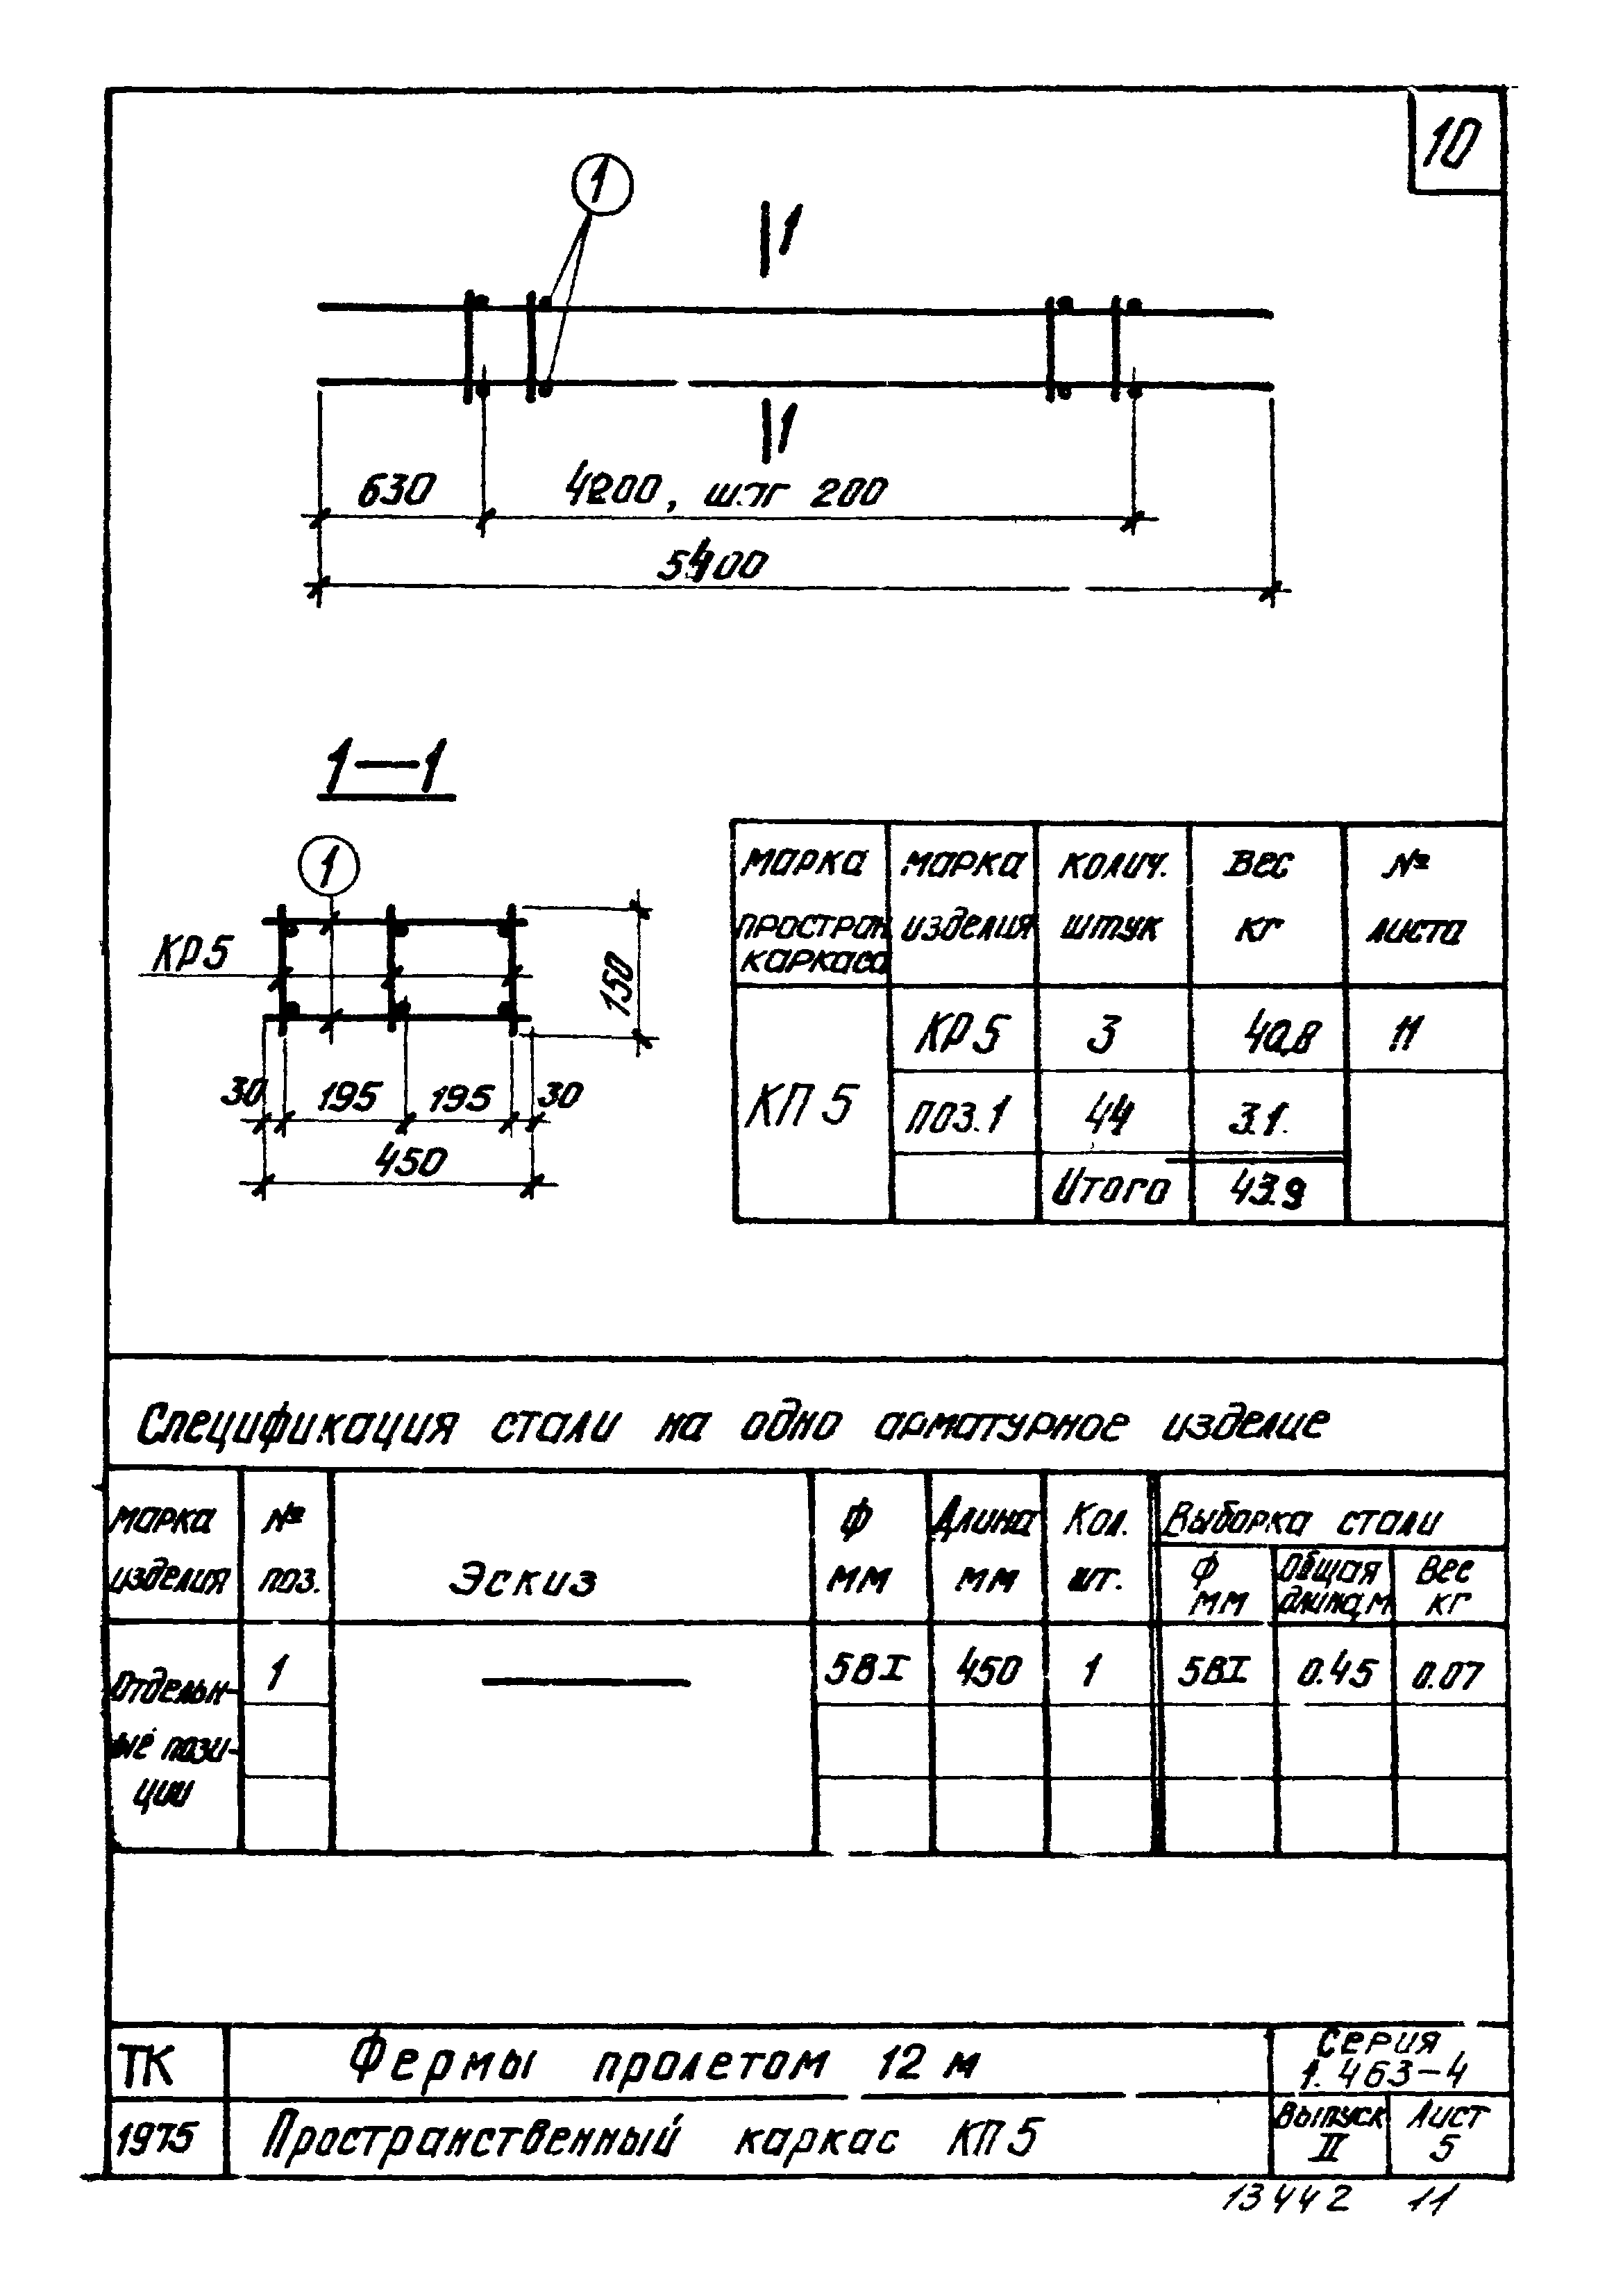 10
1
1
1
630
4200, шаг 200
5400
1—1
1
КР5
150
30 195 195 30
450
марка простран каркаса
марка изделия
колич. штук
Вес кг
№ листа
КП 5
КР5 3 40,8 11
поз.1 44 3.1.
Итого 43.9
Спецификация стали на одно арматурное изделие
марка изделия
№ поз.
Эскиз
Ф мм
Длина мм
Кол. шт.
Выборка стали
Ф мм
Общая длина, м
Вес кг
Отдельн-
ые пози-
ции
1 5ВI 450 1 5ВI 0.45 0.07
ТК
Фермы пролетом 12 м
Серия
1.463-4
1975
Пространственный каркас КП5
Выпуск
II
Лист
5
13442 11